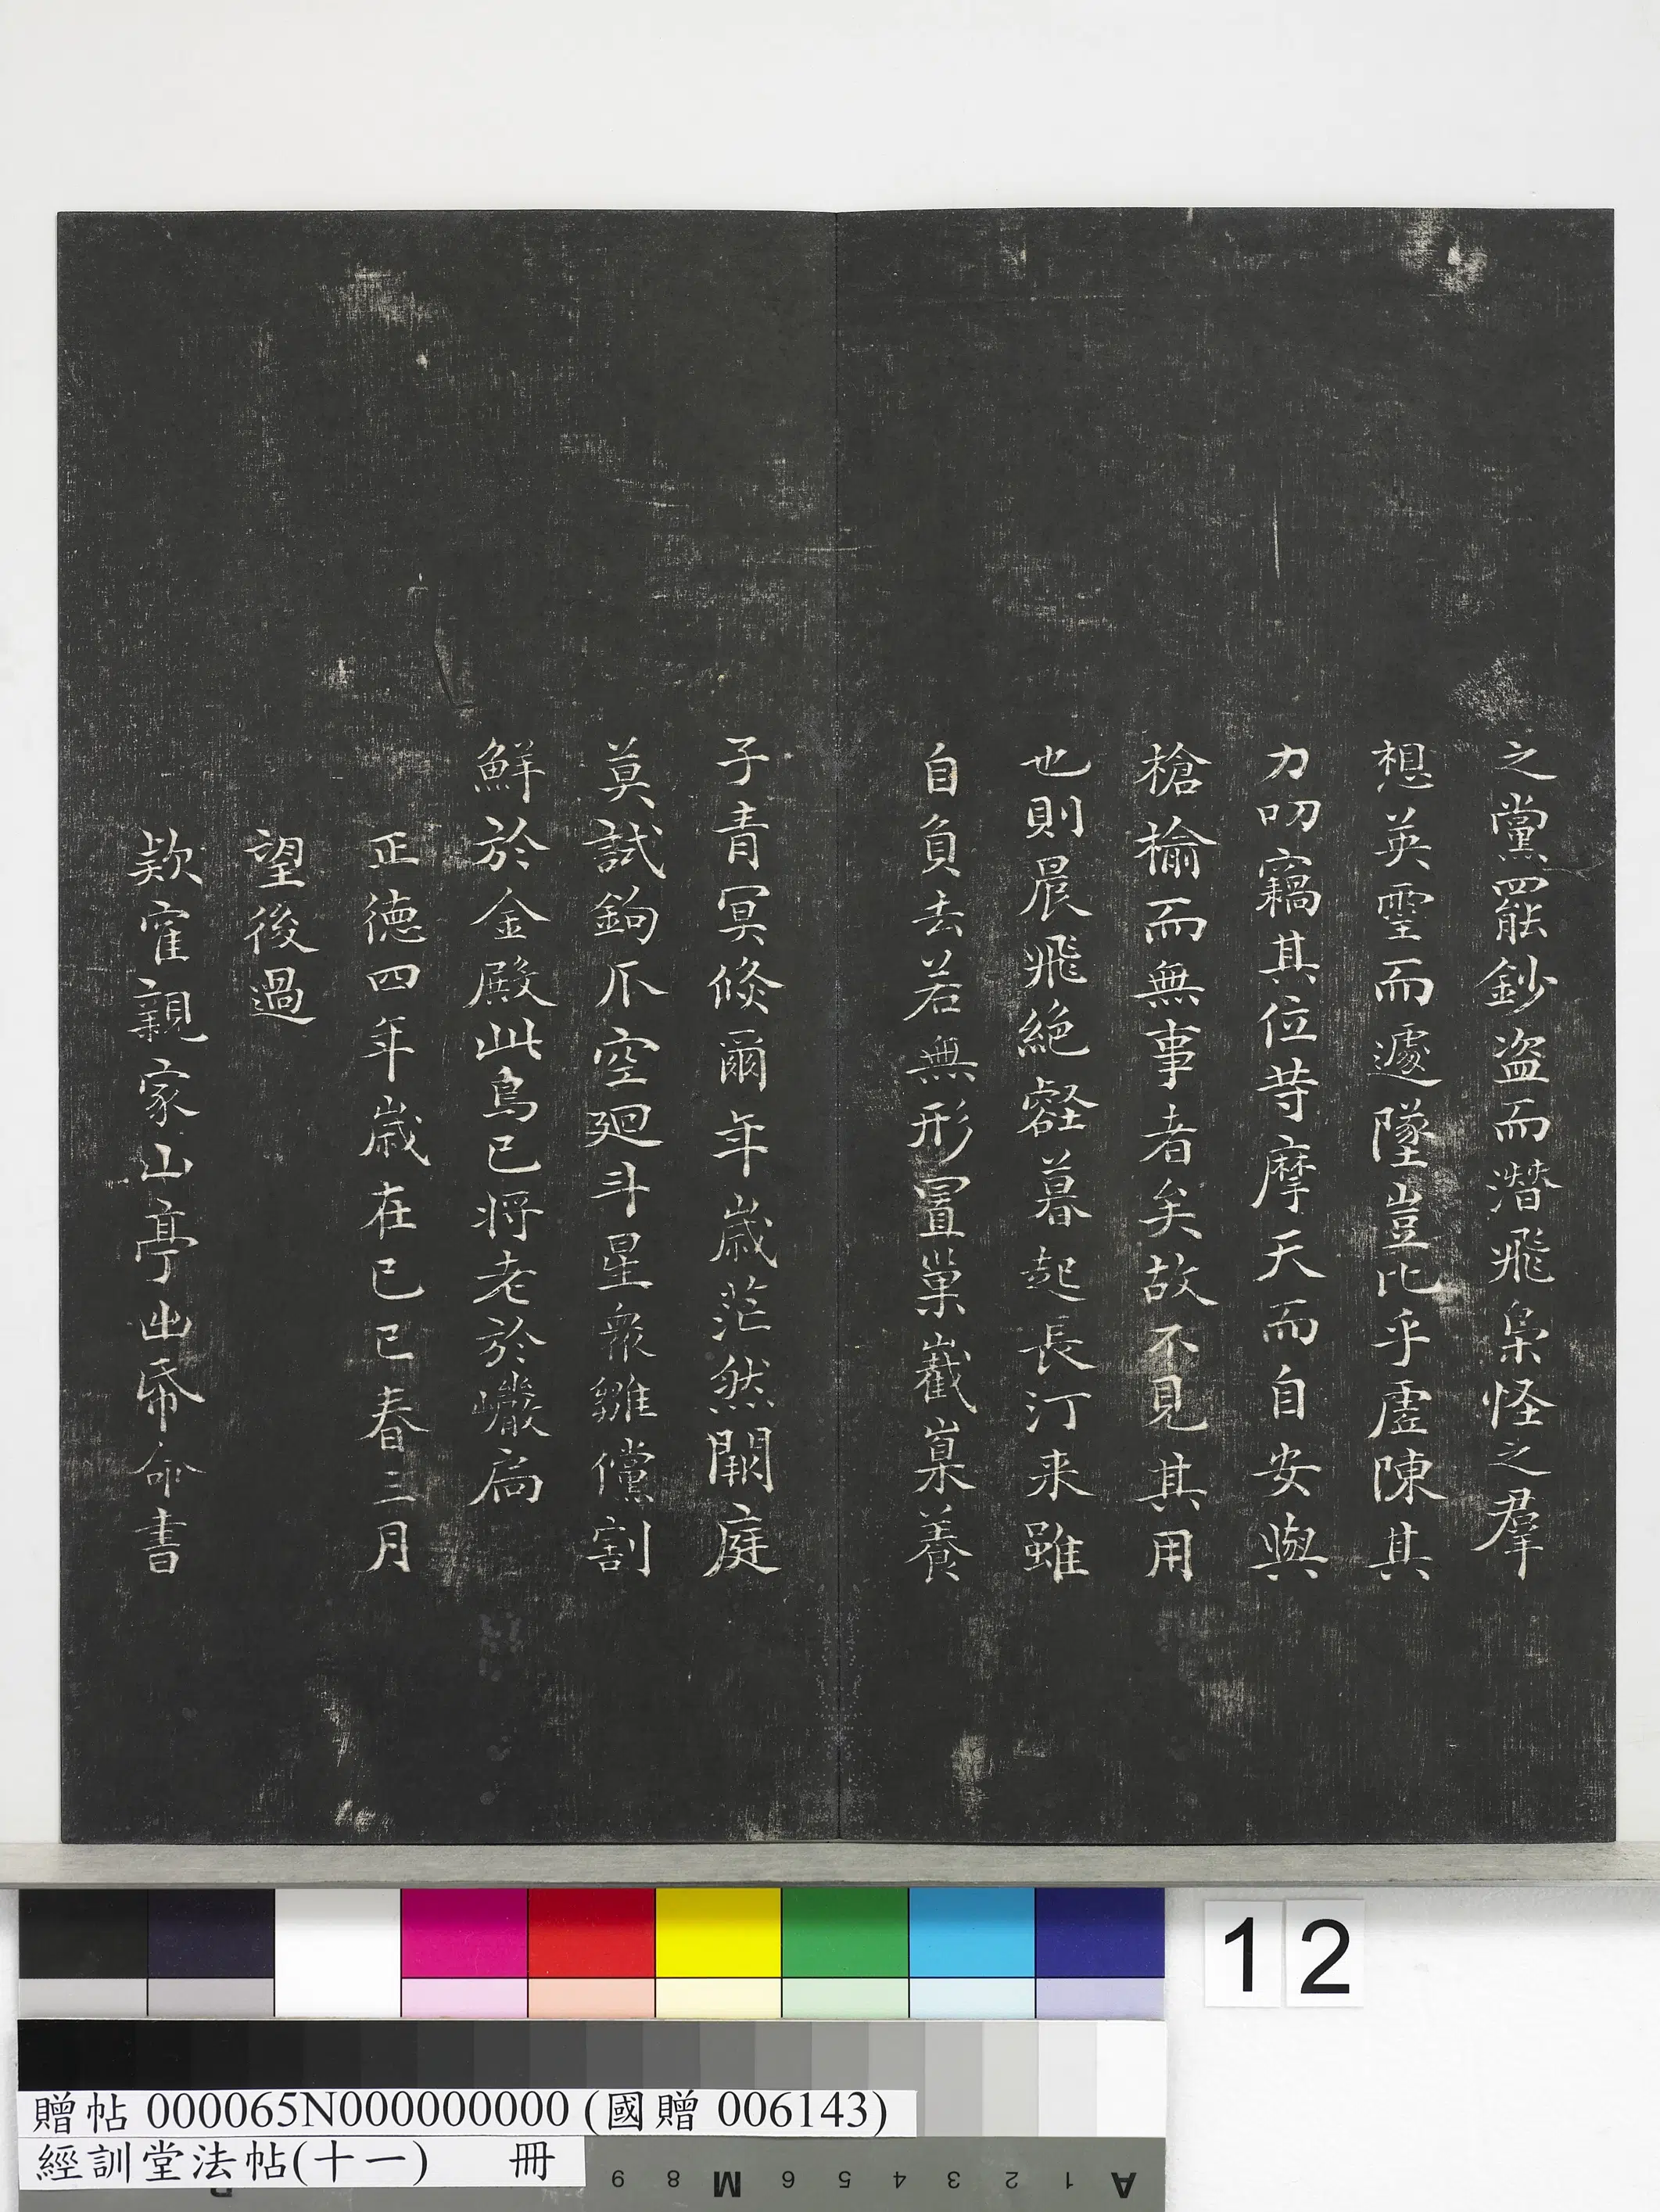 之黨罷鈔盗而潛飛枭怪之羣
想英霊而遽墜豈比乎虗陳其
力叨竊其位苛摩天而自安與
槍榆而無事者矣故不見其用
也則晨飛絶壑暮起長汀来雖
自負去若無形置巢嶻嶭養
子青冥倐爾年歲茫然闕庭
莫試鉤爪空廻斗星衆雛儻割
鮮於金殿此鳥已将老於巖扃
正徳四年歲在己巳春三月
望後過
欵寉親家山亭出帋命書
12
贈帖 000065N000000000 (國贈 006143)
經訓堂法帖(十一) 冊
9 8 M 6 5 4 3 2 1 A